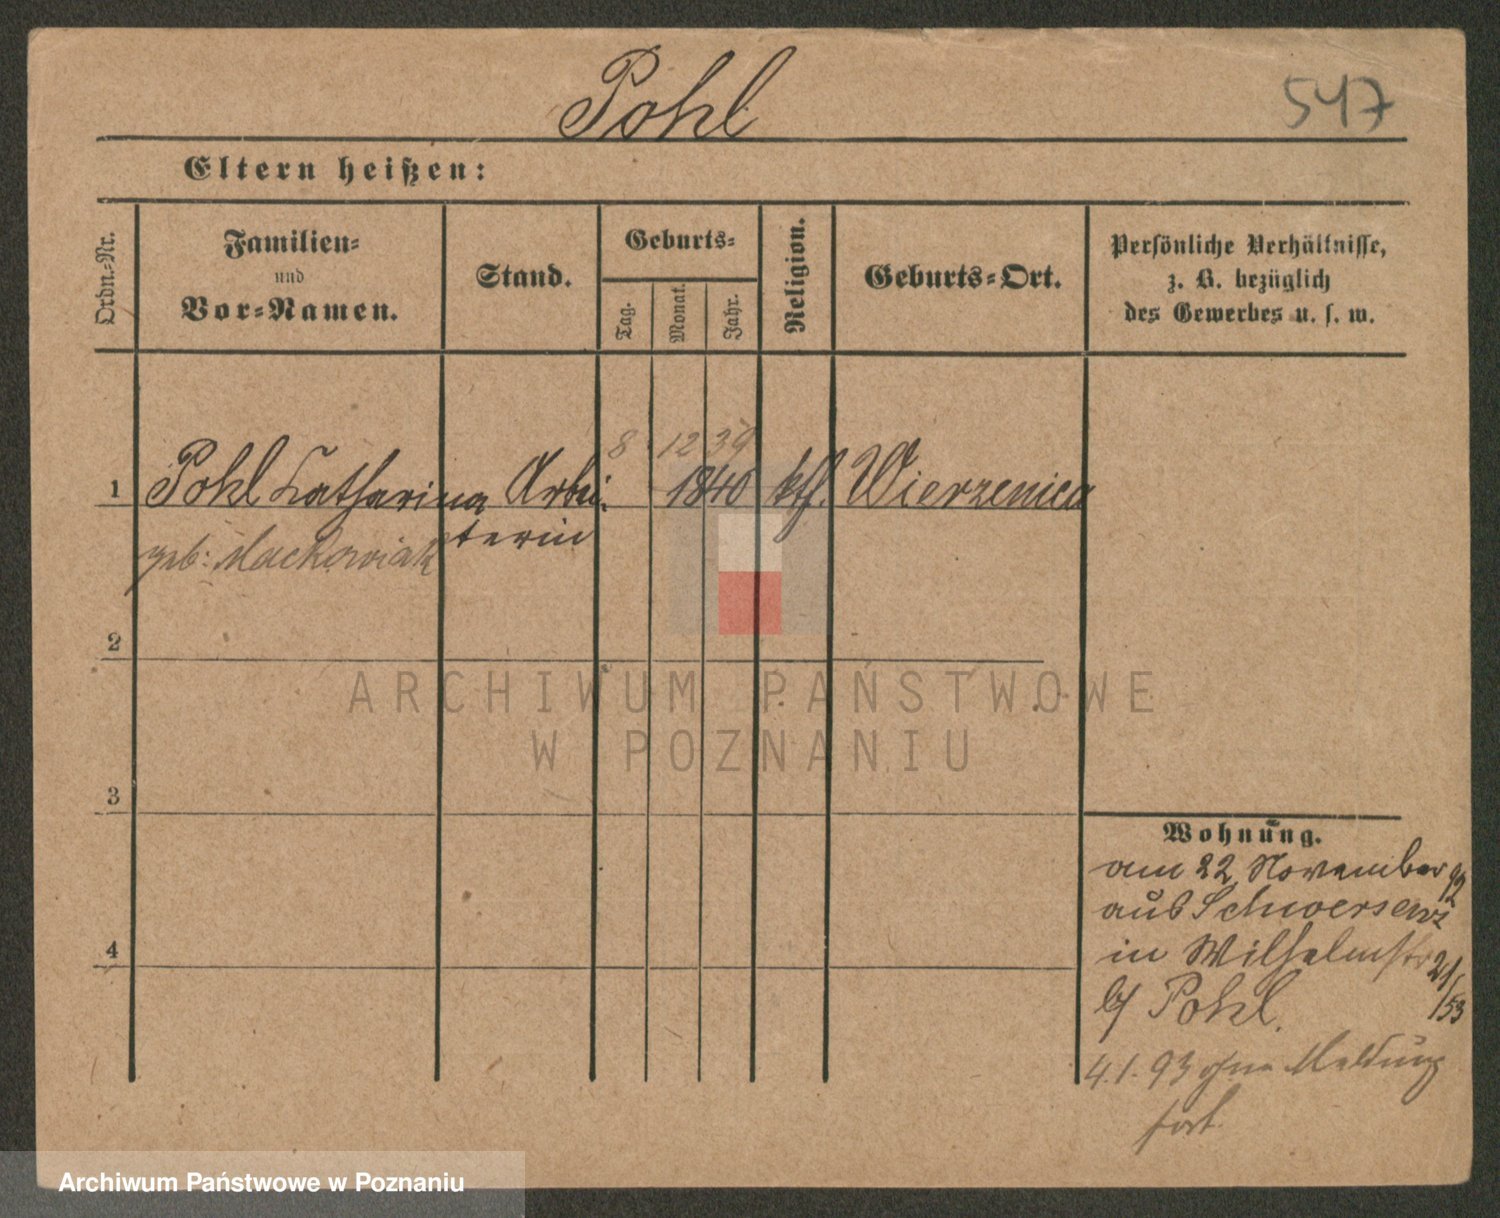 Pohl
547
Eltern heißen:
Ordn.-Nr.
Familien-
und
Vor-Namen.
Stand.
Geburts-
Tag.
Monat.
Jahr.
Religion.
Geburts-Ort.
Persönliche Verhältnisse,
z. B. bezüglich
des Gewerbes u. s. w.
8 12 39
1 Pohl Katharina Arbei- 1840 kth. Wierzenica
terin
geb: Mackowiak
2
3
4
Wohnung.
am 22 November 92
aus Schwersenz
in Wilhelmstr 21/53
b/ Pohl.
4.1.93 ohne Meldung
fort
ARCHIWUM PAŃSTWOWE
W POZNANIU
Archiwum Państwowe w Poznaniu